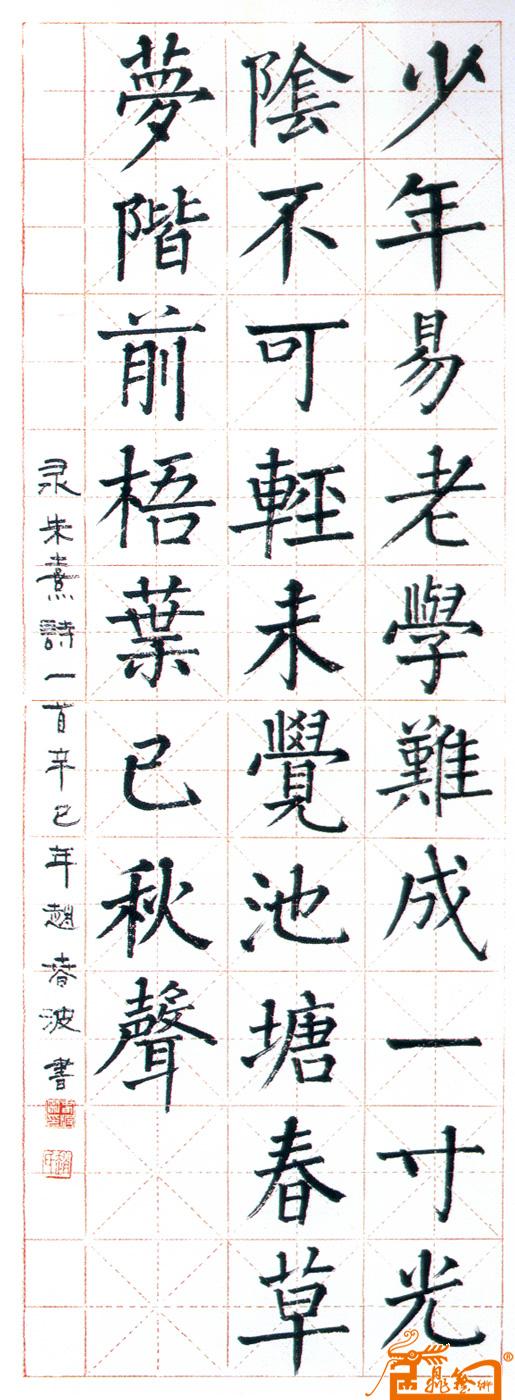 少年易老學難成一寸光
陰不可輕未覺池塘春草
夢階前梧葉已秋聲
录朱熹詩一首辛巳年趙春波書